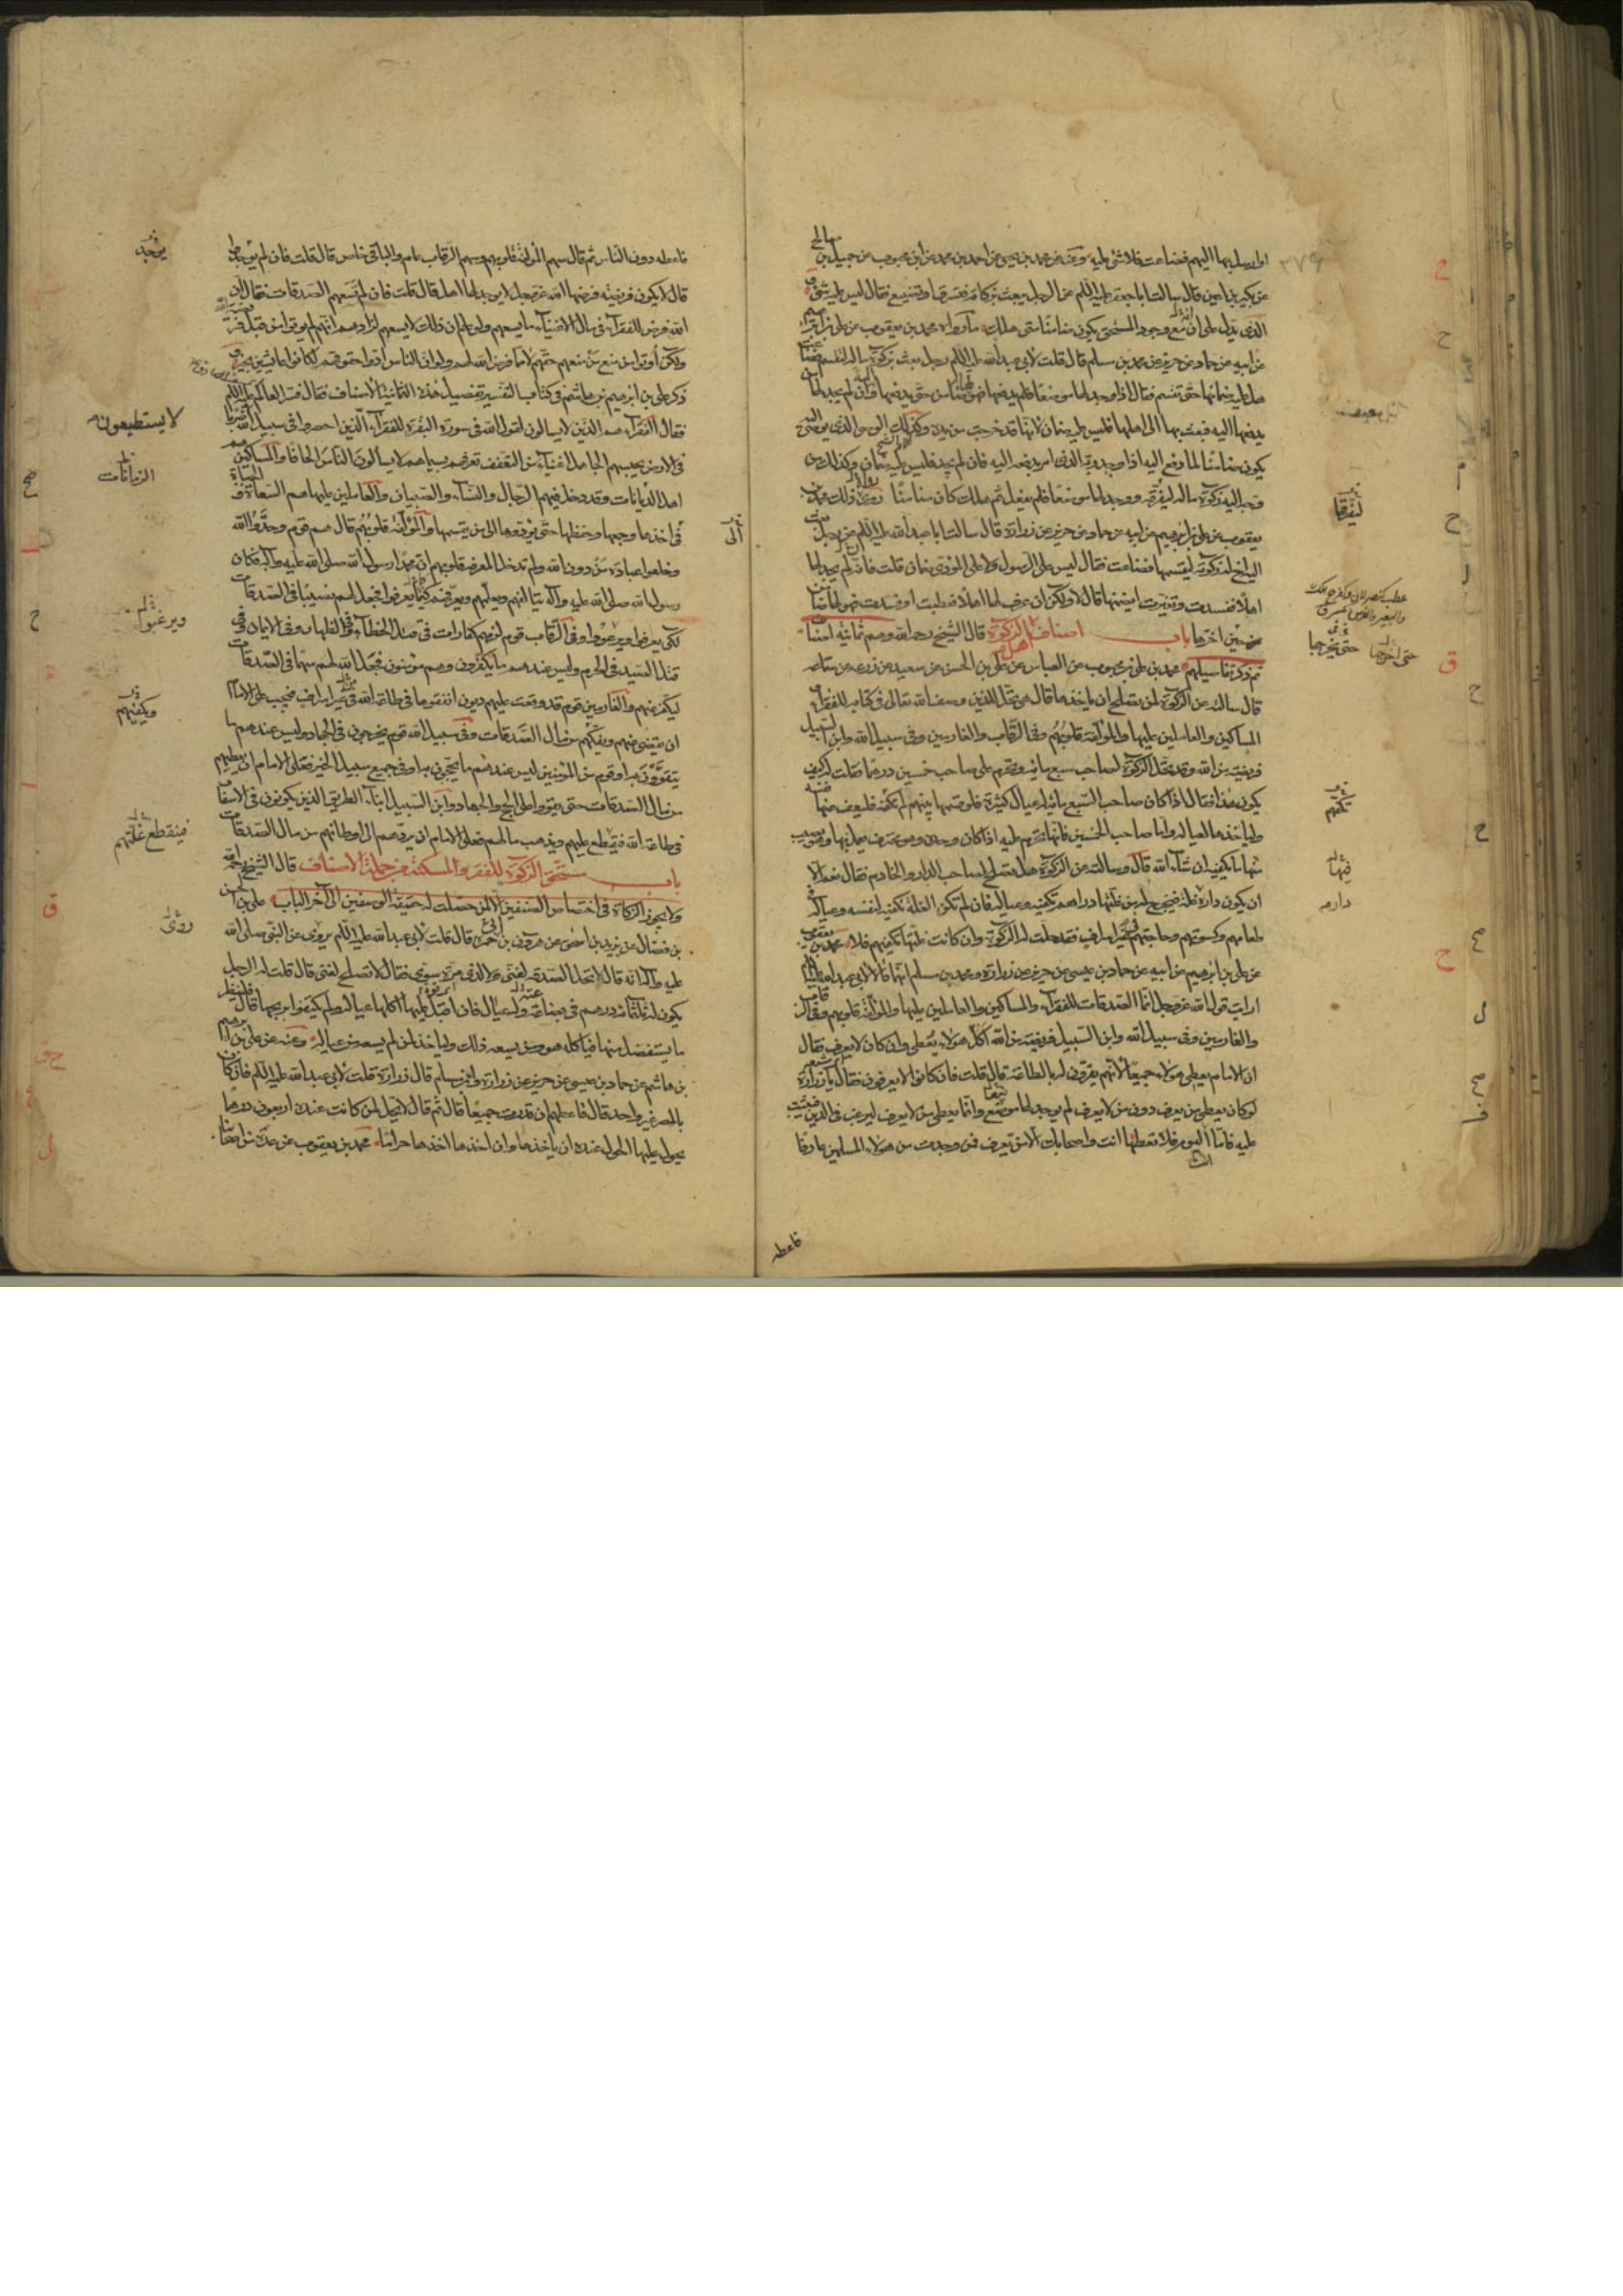 او ارسل بها اليهم فضاعت فلا شئ عليه وعنه عن محمد بن يحيى عن احمد بن محمد عن ابن محبوب عن جميل بن صالح
عن بكير بن اعين قال سالت ابا جعفر عليه السلم عن الرجل يبعث بزكاته فتسرق او تضيع فقال ليس عليه شئ و
الذى يدل على ان مع وجود المستحق يكون ضامنا متى هلك ما رواه محمد بن يعقوب عن على بن ابرهيم
عن ابيه عن حماد عن حريز عن محمد بن مسلم قال قلت لابى عبد الله عليه السلم رجل بعث بزكوة ماله لتقسم فضاعت
هل عليه ضمانها حتى تقسم فقال اذا وجد لها موضعا فلم يدفعها فهو لها ضامن حتى يدفعها وان لم يجد لها من
يدفعها اليه فبعث بها الى اهلها فليس عليه ضمان لانها قد خرجت من يده وكذلك الوصى الذى يوصى اليه
يكون ضامنا لما دفع اليه اذا وجد ربه الذى امر بدفعه اليه فان لم يجد فليس عليه ضمان وكذلك من
وجه اليه زكوة ماله ليفرقه ووجد لها موضعا فلم يفعل ثم هلك كان ضامنا روى ذلك محمد بن
يعقوب عن على بن ابرهيم عن ابيه عن حماد عن حريز عن زرارة قال سالت ابا عبد الله عليه السلم عن رجل بعث
اليه اخ له زكوته ليقسمها فضاعت فقال ليس على الرسول ولا على المؤدى ضمان قلت فانه لم يجد لها
اهلا ففسدت وتغيرت ايضمنها قال لا ولكن ان عرف لها اهلا فعطبت او فسدت فهو لها ضامن
من حين اخرها باب اصناف اهل الزكوة قال الشيخ رحمه الله وهم ثمانية اصناف
ثم ذكر تفاصيلهم محمد بن على بن محبوب عن العباس عن على بن الحسن عن سعيد عن زرعة عن سماعة
قال سالته عن الزكوة لمن تصلح ان ياخذها قال هى تحل للذين وصف الله تعالى فى كتابه للفقراء و
المساكين والعاملين عليها والمؤلفة قلوبهم وفى الرقاب والغارمين وفى سبيل الله وابن السبيل
فريضة من الله وقد تحل الزكوة لصاحب سبع مائة وتحرم على صاحب خمسين درهما فقلت له كيف
يكون هذا فقال اذا كان صاحب السبع مائة له عيال كثيرة فلو قسمها بينهم لم تكفه فليعف عنها نفسه
ولياخذها لعياله واما صاحب الخمسين فانها تحرم عليه اذا كان وحده وهو محترف يعمل بها وهو يصيب
منها ما يكفيه ان شاء الله قال وسالته عن الزكوة هل تصلح لصاحب الدار والخادم فقال نعم الا
ان يكون داره غلة فيخرج له من غلتها دراهم تكفيه وعياله فان لم تكن الغلة تكفيه لنفسه وعياله فى
طعامهم وكسوتهم وحاجتهم فى غير اسراف فقد حلت له الزكوة وان كانت غلتها تكفيهم فلا محمد بن يعقوب
عن على بن ابرهيم عن ابيه عن حماد بن عيسى عن حريز عن زرارة ومحمد بن مسلم انهما قالا لابى عبد الله عليه السلم
ارايت قول الله عز وجل انما الصدقات للفقراء والمساكين والعاملين عليها والمؤلفة قلوبهم وفى الرقاب
والغارمين وفى سبيل الله وابن السبيل فريضة من الله اكل هؤلاء يعطى وان كان لا يعرف فقال
ان الامام يعطى هؤلاء جميعا لانهم يقرون له بالطاعة قال قلت فان كانوا لا يعرفون فقال يا زرارة
لو كان يعطى من يعرف دون من لا يعرف لم يوجد لها موضع وانما يعطى من لا يعرف ليرغب فى الدين فيثبت
عليه فاما اليوم فلا تعطها انت واصحابك الا من يعرف فمن وجدت من هؤلاء المسلمين عارفا
فاعطه
ليفرقها
حتى اخرجها حتى يخرجها
تكفهم
فيها
داره
فاعطه دون الناس ثم قال سهم المؤلفة قلوبهم وسهم الرقاب عام والباقى خاص قال قلت فان لم يوجدوا
قال لا يكون فريضة فرضها الله عز وجل لا يوجد لها اهل قال قلت فان لم تسعهم الصدقات فقال ان
الله فرض للفقراء فى مال الاغنياء ما يسعهم ولو علم ان ذلك لا يسعهم لزادهم انهم لم يؤتوا من قبل فريضة الله
ولكن اوتوا من منع من منعهم حقهم لا مما فرض الله لهم ولو ان الناس ادوا حقوقهم لكانوا عائشين بخير و
ذكر على بن ابرهيم بن هاشم فى كتاب التفسير تفصيل هذه الثمانية الاصناف فقال فسر العالم عليه السلم
فقال الفقراء هم الذين لا يسالون لقول الله فى سورة البقرة للفقراء الذين احصروا فى سبيل الله لا يستطيعون ضربا
فى الارض يحسبهم الجاهل اغنياء من التعفف تعرفهم بسيماهم لا يسالون الناس الحافا والمساكين هم
اهل الديانات وقد دخل فيهم الرجال والنساء والصبيان والعاملين عليها هم السعاة و الجباة
فى اخذها وجمعها وحفظها حتى يؤدوها الى من يقسمها والمؤلفة قلوبهم قال هم قوم وحدوا الله
وخلعوا عبادة من دون الله ولم تدخل المعرفة قلوبهم ان محمدا رسول الله صلى الله عليه وآله فكان
رسول الله صلى الله عليه وآله يتالفهم ويعلمهم ويعرفهم كيما يعرفوا فجعل لهم نصيبا فى الصدقات
لكى يعرفوا ويرعووا وفى الرقاب قوم لزمهم كفارات فى قتل الخطاء وفى الظهار وفى الايمان وفى
قتل الصيد فى الحرم وليس عندهم ما يكفرون وهم مؤمنون فجعل الله لهم سهما فى الصدقات
ليكفر عنهم والغارمين قوم قد وقعت عليهم ديون انفقوها فى طاعة الله فى غير اسراف فيجب على الامام
ان يقضى عنهم ويفكهم من مال الصدقات وفى سبيل الله قوم يخرجون فى الجهاد وليس عندهم ما
يتقوون به او قوم من المؤمنين ليس عندهم ما يحجون به او فى جميع سبيل الخير فعلى الامام ان يعطيهم
من مال الصدقات حتى يقووا على الحج والجهاد وابن السبيل ابناء الطريق الذين يكونون فى الاسفار
فى طاعة الله فيقطع عليهم ويذهب مالهم فعلى الامام ان يردهم الى اوطانهم من مال الصدقات
باب مستحق الزكوة للفقر والمسكنة من جملة الاصناف قال الشيخ رحمه الله
ولا يجوز الزكاة فى اختصاص الصنفين الا لمن حصلت له حقيقة الوصفين الى آخر الباب على بن الحسن
بن فضال عن يزيد بن اسحق عن هرون بن حمزة قال قلت لابى عبد الله عليه السلم يروى عن النبى صلى الله
عليه وآله انه قال لا تحل الصدقة لغنى ولا لذى مرة سوى فقال لا تصلح لغنى قال قلت له الرجل
يكون له ثلثمائة درهم فى بضاعة وله عيال فان اقبل عليها اكلها عياله ولم يكتفوا بربحها قال فلينظر
ما يستفضل منها فياكله هو ومن يسعه ذلك ولياخذ لمن لم يسعه من عياله وعنه عن على بن ابرهيم
بن هاشم عن حماد بن عيسى عن حريز عن زرارة وابن مسلم قال زرارة قلت لابى عبد الله عليه السلم فان كان
بالمصر غير واحد قال فاعطهم ان قدرت جميعا قال ثم قال لا يحل لمن كانت عنده اربعون درهما
يحول عليها الحول عنده ان ياخذها وان اخذها اخذها حراما محمد بن يعقوب عن عدة من اصحابنا
يوجد
لا يستطيعون
الزمانات
الى
ويرغبوا
ويكفيهم
فينقطع عليهم
روى